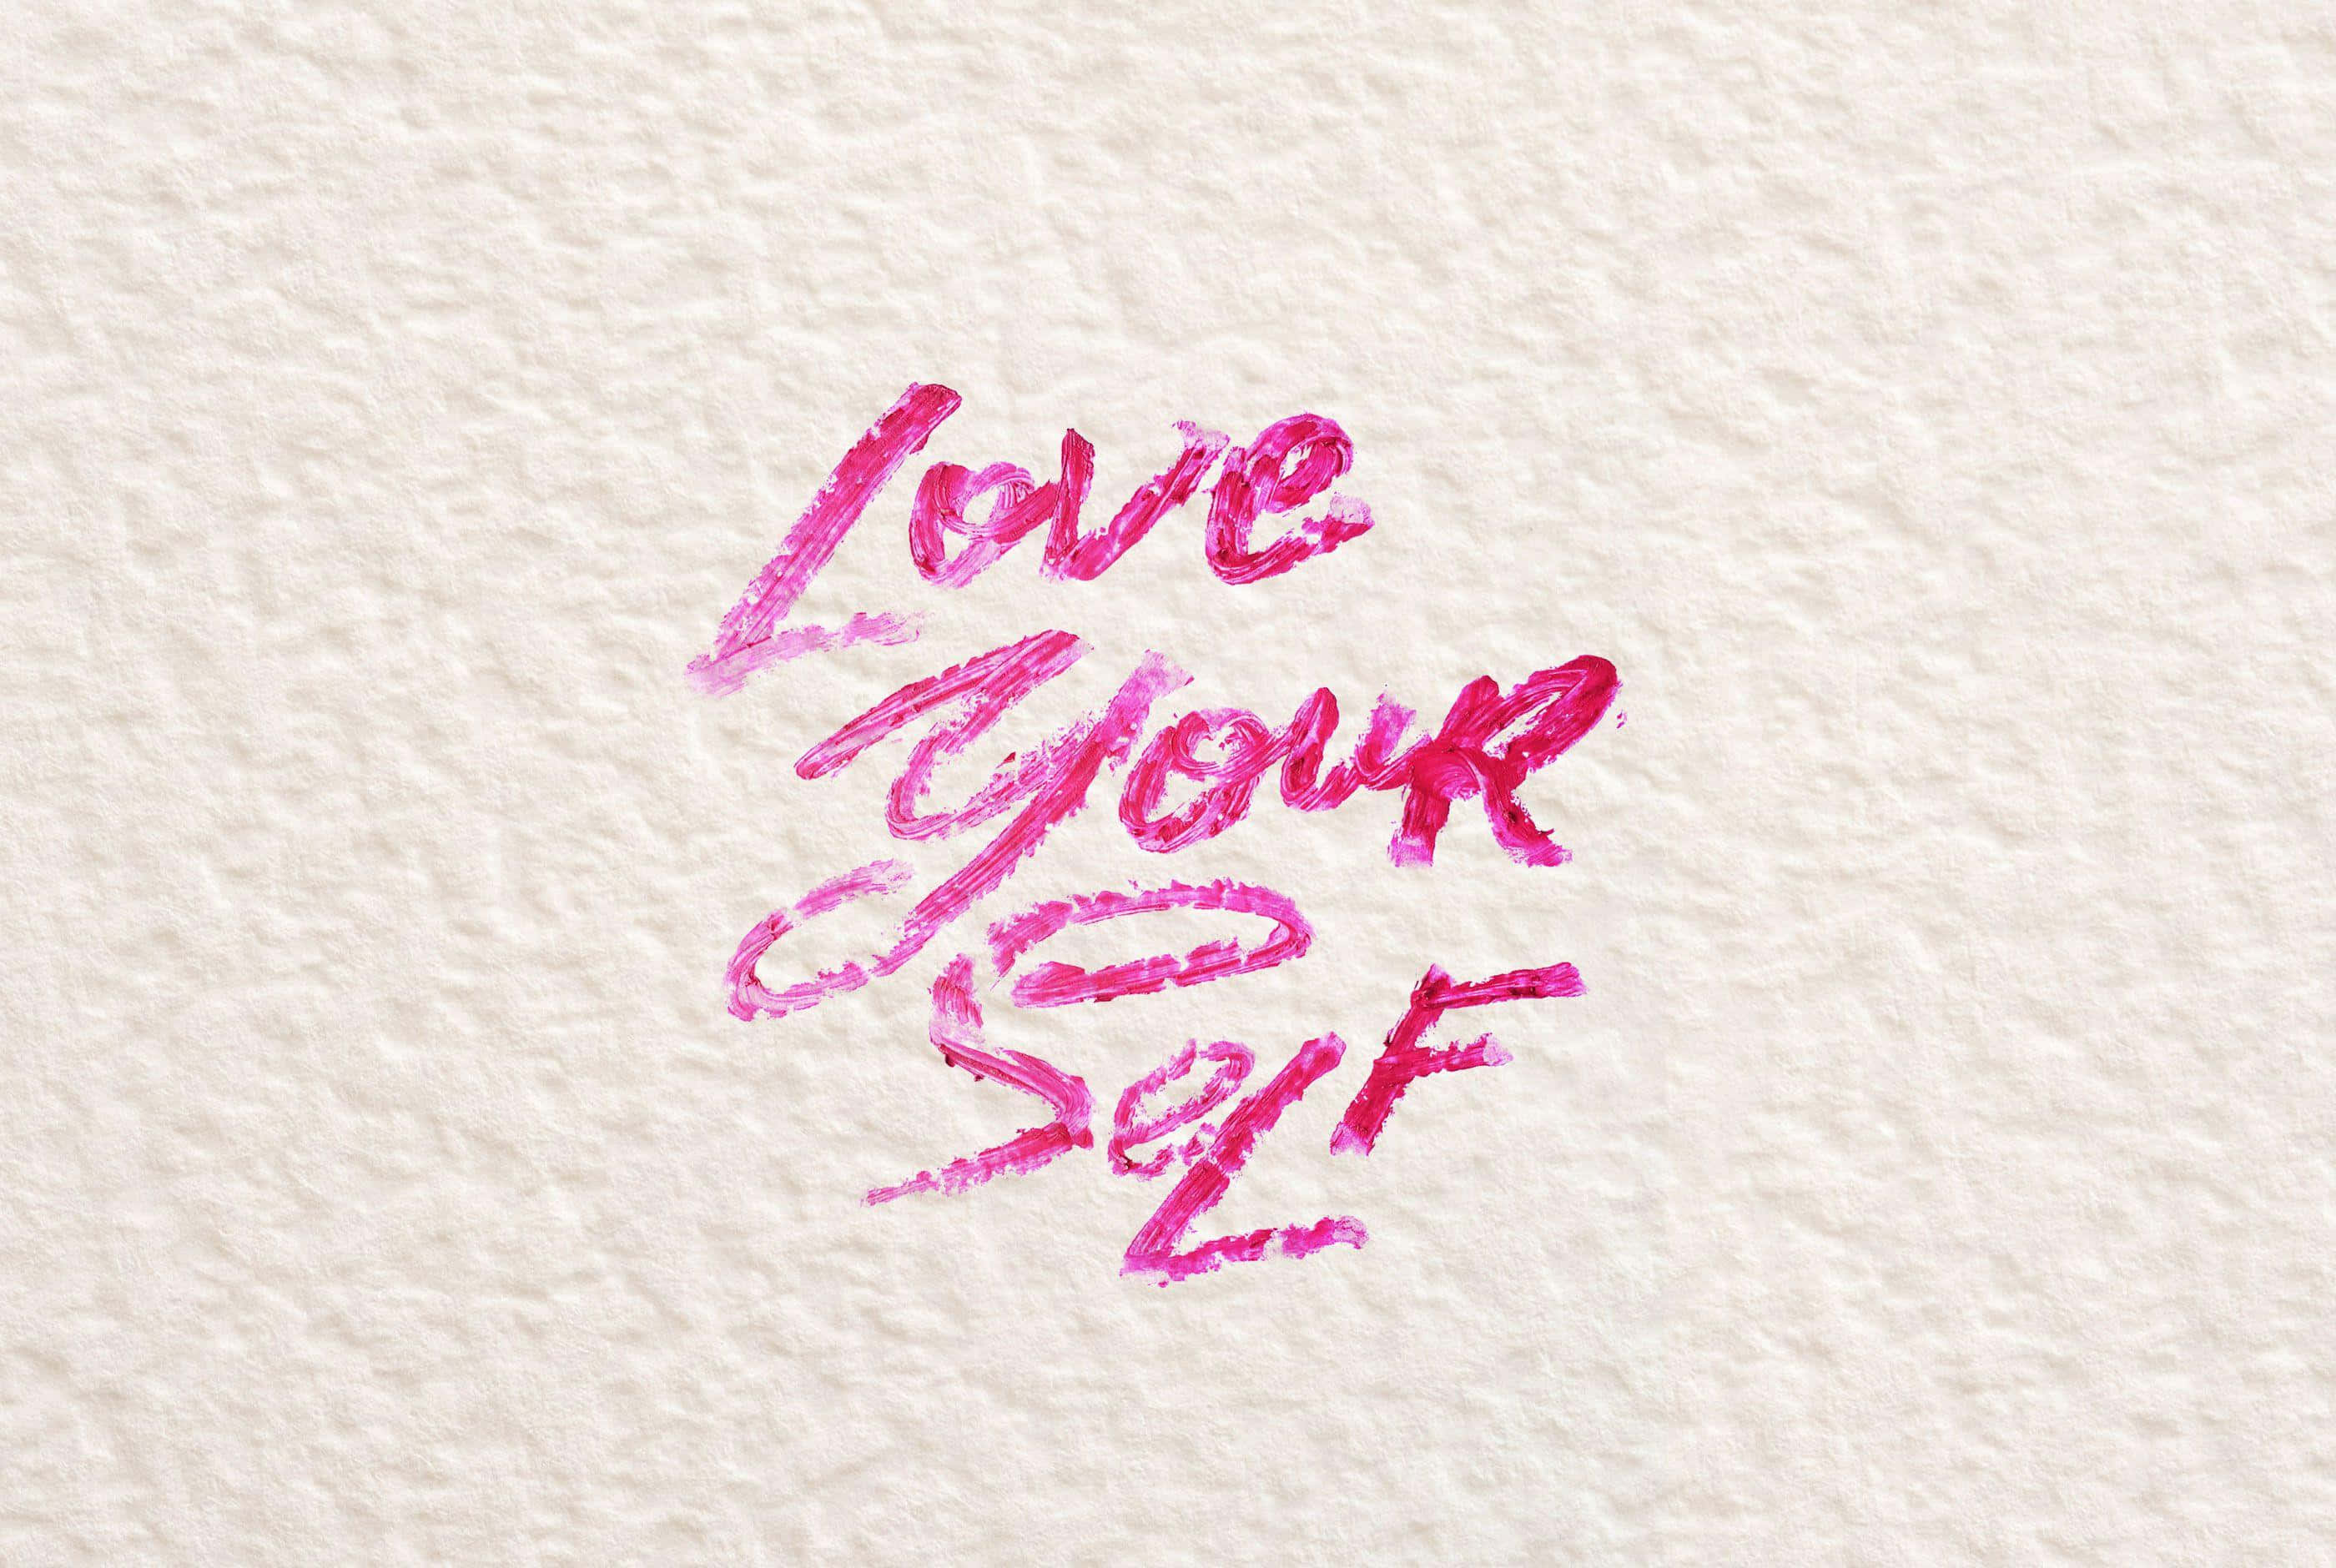 Love
YouR
SeLF